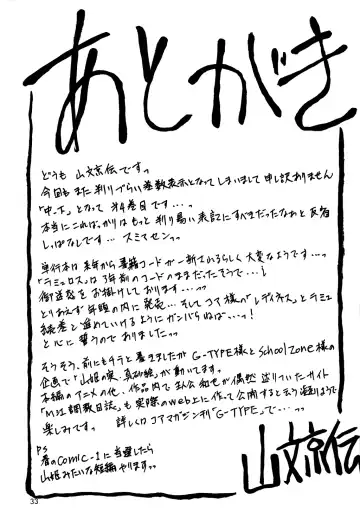 あとがき
どうも 山文京伝です。
今回もまた判りづらい巻数表示となってしまいまして申し訳ありません
「中・下」となって 第4巻目です…
本当にこればっかりはもっと判り易い表記にすべきだったなぁと反省
しっぱなしです… スミマセンっ
単行本は来年から書籍コードが一新されるらしく大変なようです…
「ラミュロス」は3年前のコードのままだったそうで…
御迷惑をお掛けしております…
とりあえず年頭の内に発売… そしてコア様の「レディネス」とラミュ
続巻と進めていけるようにガンバらねば…っ!
と心に誓うのでありましたっ
そうそう、前にもチラと書きましたが G-TYPE様とSchool zone様の
企画で「山姫の実、真砂絵」が動いてます。
本編のアニメの化、作品内で主人公和也が偶然辿りついたサイト
「M21調教日誌」も実際のweb上に作って公開すると云う
楽しみです。 詳しくはコアマガジン刊「G-TYPE」で…
PS
春のcomic-1に当選したら
山姫みたいな短編やりますっ
山文京伝
33